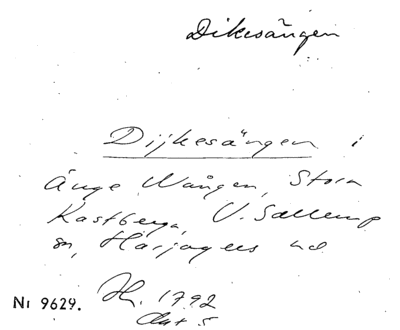 Dikesängen
Dijkesängen i
Änge Wången, Stora
Kastberga, V. Sallerup
sn, Harjagers hd
Nr 9629. Jh. 1792
akt 5